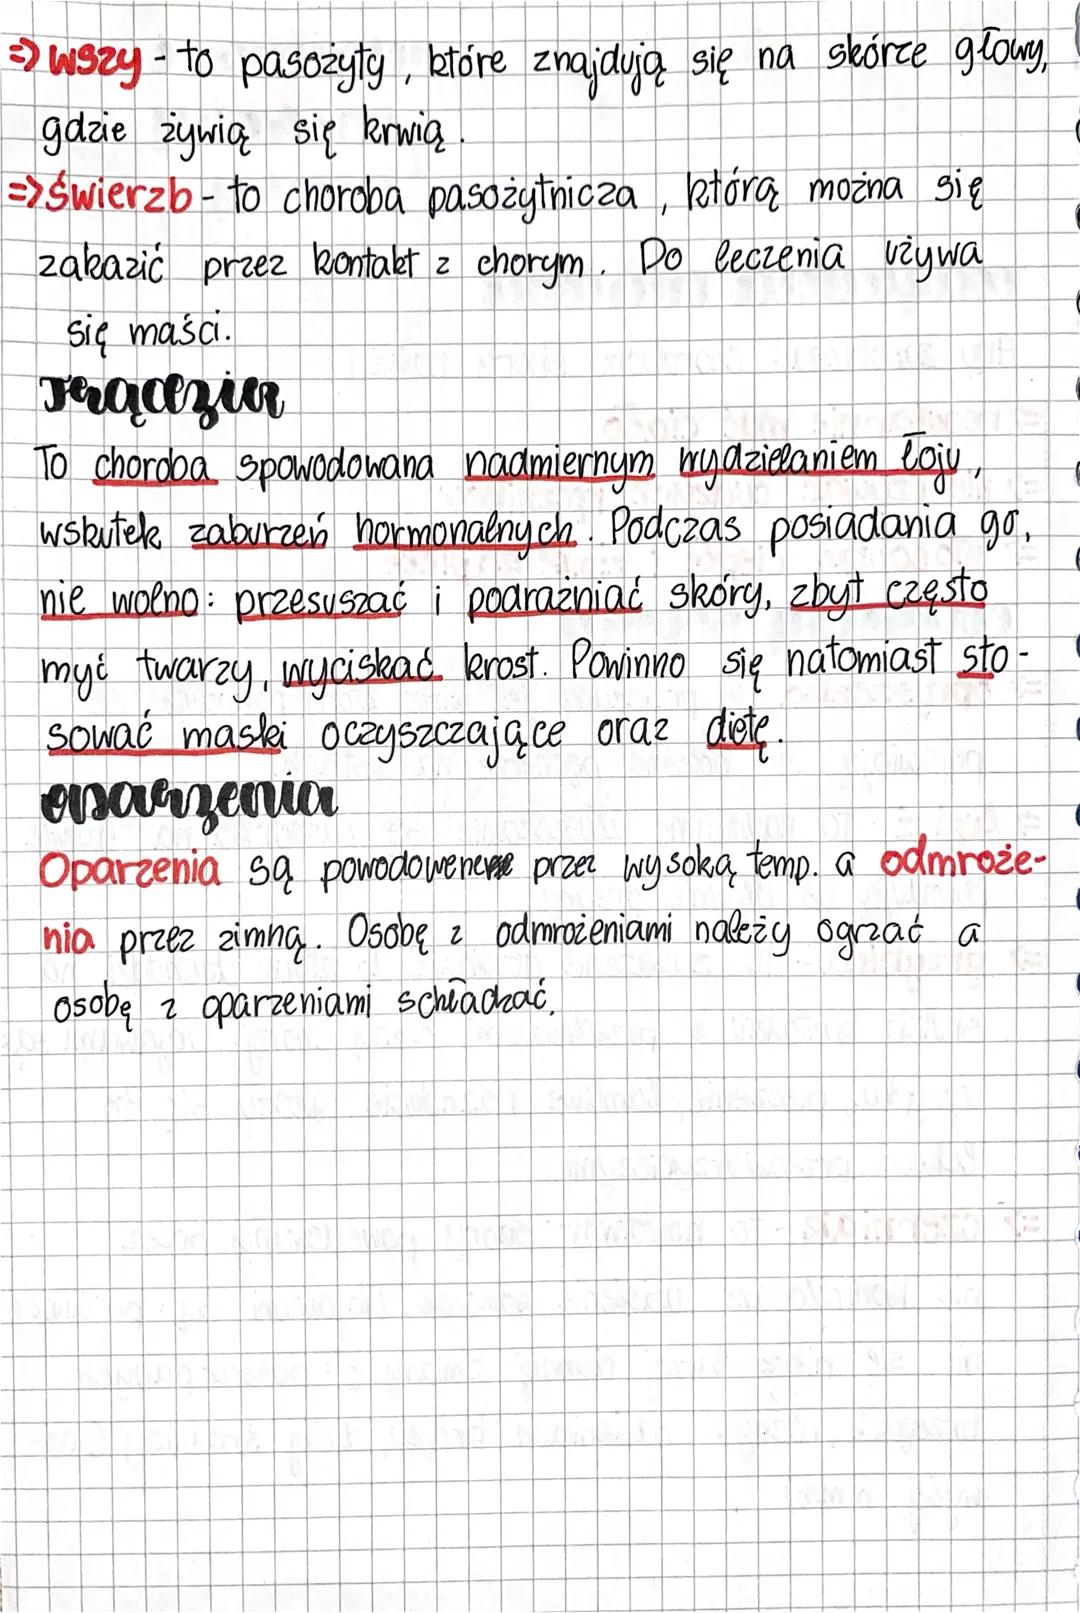 => wszy - to pasożyty, które znajdują się na skórze głowy,
gdzie żywią się krwią.
=> świerzb - to choroba pasożytnicza, którą można się
zakazić przez kontakt z chorym. Do leczenia używa
się maści.
Trądzik
To choroba spowodowana nadmiernym wydzielaniem łoju,
wskutek zaburzeń hormonalnych. Podczas posiadania go,
nie wolno: przesuszać i podrażniać skóry, zbyt często
myć twarzy, wyciskać krost. Powinno się natomiast sto-
sować maski oczyszczające oraz dietę.
oparzenia
Oparzenia są powodowene przez wysoką temp. a odmroże-
nia przez zimną. Osobę z odmrożeniami należy ogrzać a
osobę z oparzeniami schładzać.